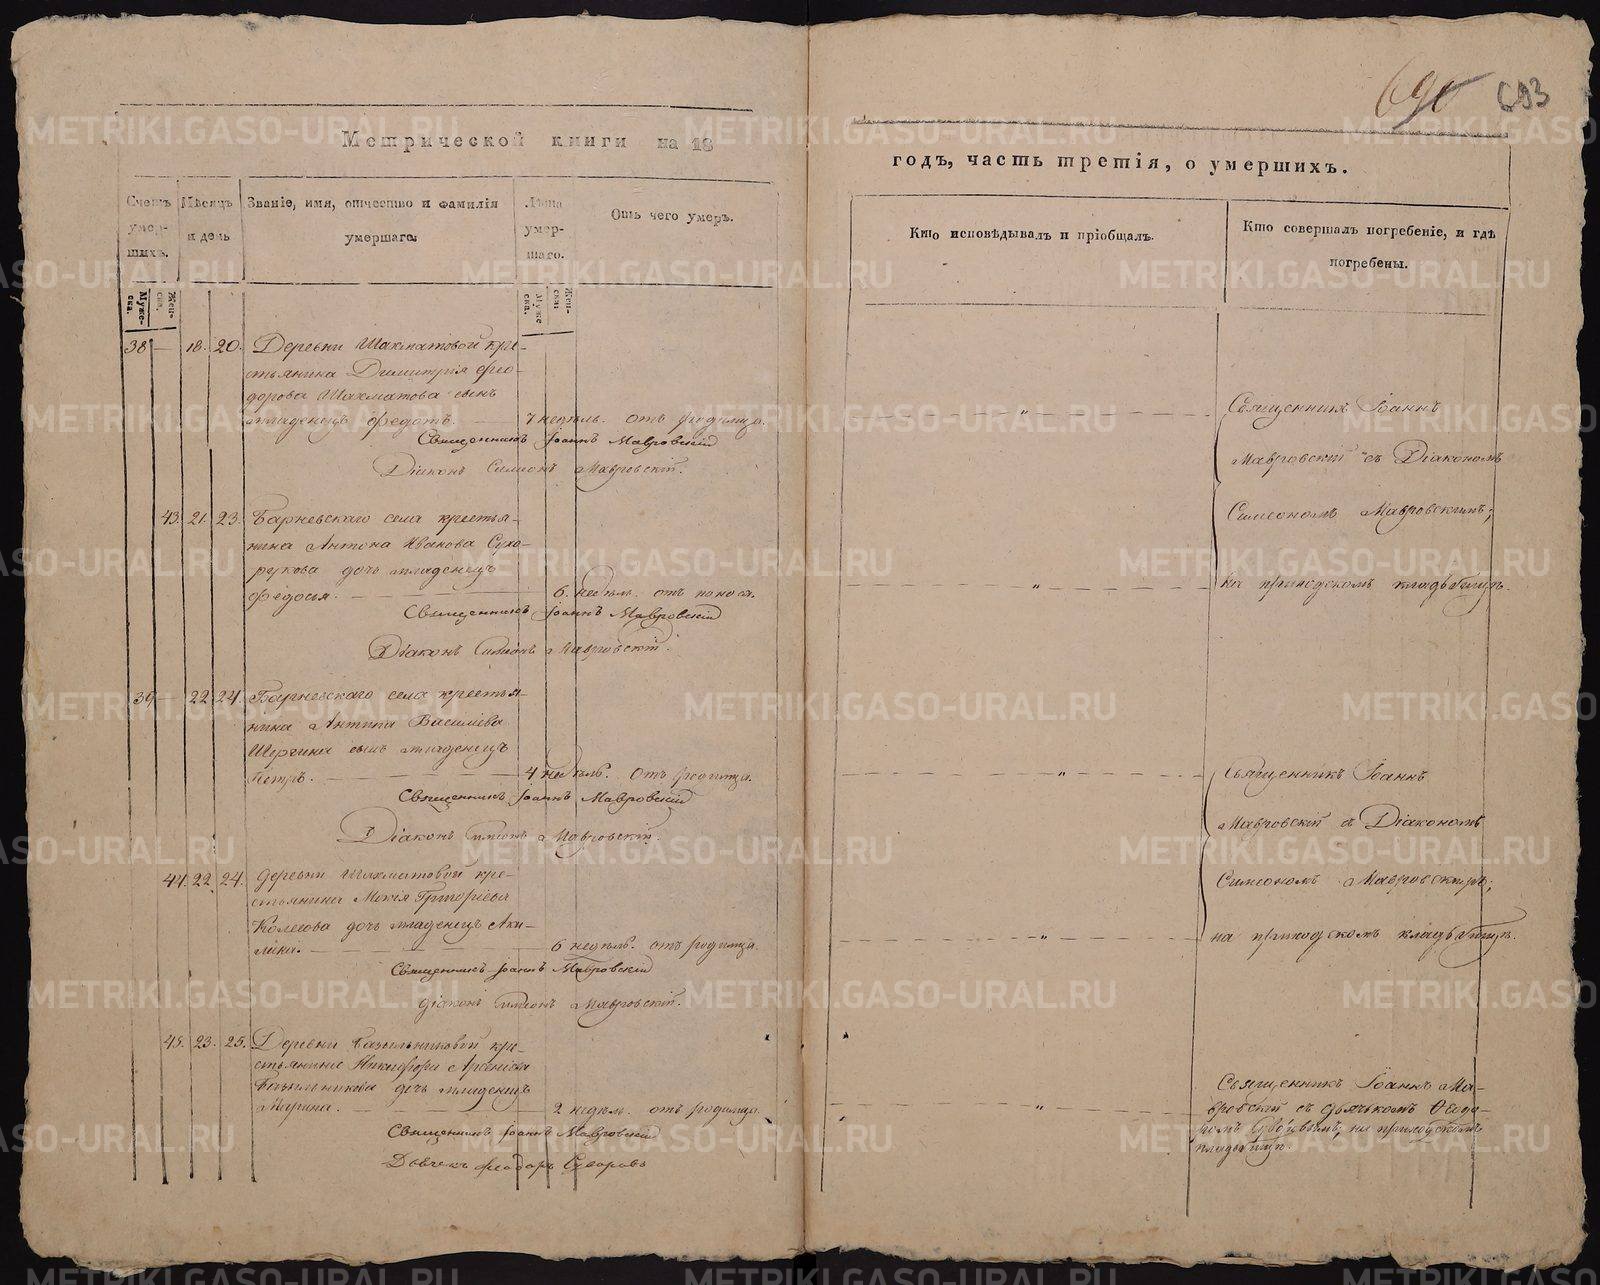 690 693
Метрической книги на 18
годъ, часть третія, о умершихъ.
Счетъ умер- шихъ.
Муже- ска.
Жен- ска.
Мѣсяцъ и день
Званіе, имя, отчество и фамилія умершаго.
Лѣта умер- шаго.
Муже ска.
Жен- ска.
Отъ чего умеръ.
Кто исповѣдывалъ и пріобщалъ.
Кто совершалъ погребеніе, и гдѣ погребены.
38 — 18. 20. Деревни Шахматовой кре-
стьянина Димитрія Фео-
дорова Шахматова сынъ
младенецъ Федотъ. — 7 недѣль. отъ родимца.
Священникъ Іоаннъ Мавровскій
Діаконъ Симеонъ Мавровскій.
Священникъ Іоаннъ
Мавровскій съ Діакономъ
Симеономъ Мавровскимъ;
на приходскомъ кладбищѣ.
43. 21. 23. Барневскаго села крестья-
нина Антона Иванова Сухо-
рукова дочь младенецъ
Федосья. — 6. недѣль. отъ поноса.
Священникъ Іоаннъ Мавровскій
Діаконъ Симеонъ Мавровскій.
39 — 22 24. Барневскаго села крестья-
нина Антипа Василіева
Шергина сынъ младенецъ
Петръ. — 4 недѣль. Отъ родимца.
Священникъ Іоаннъ Мавровскій
Діаконъ Симеонъ Мавровскій.
Священникъ Іоаннъ
Мавровскій съ Діакономъ
Симеономъ Мавровскимъ;
на приходскомъ кладбищѣ.
44. 22. 24. деревни Шахматовой кре-
стьянина Мокія Григорьева
Колесова дочь младенецъ Аки-
лина. — 6 недѣль. отъ родимца.
Священникъ Іоаннъ Мавровскій
діаконъ Симеонъ Мавровскій.
45. 23. 25. Деревни кре-
стьянина Никифора Арсеніева
дочь младенецъ
Марина. — 2 недѣль. отъ родимца.
Священникъ Іоаннъ Мавровскій
Дьячекъ Феодоръ Суворовъ
Священникъ Іоаннъ Ма-
вровскій съ дьячкомъ Феодо-
ромъ Суворовымъ; на приходскомъ
кладбищѣ.
METRIKI.GASO-URAL.RU